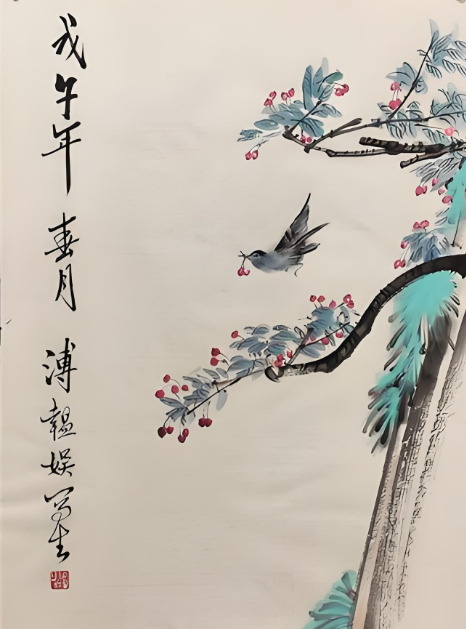 戊午年 春月 溥韞娱写生